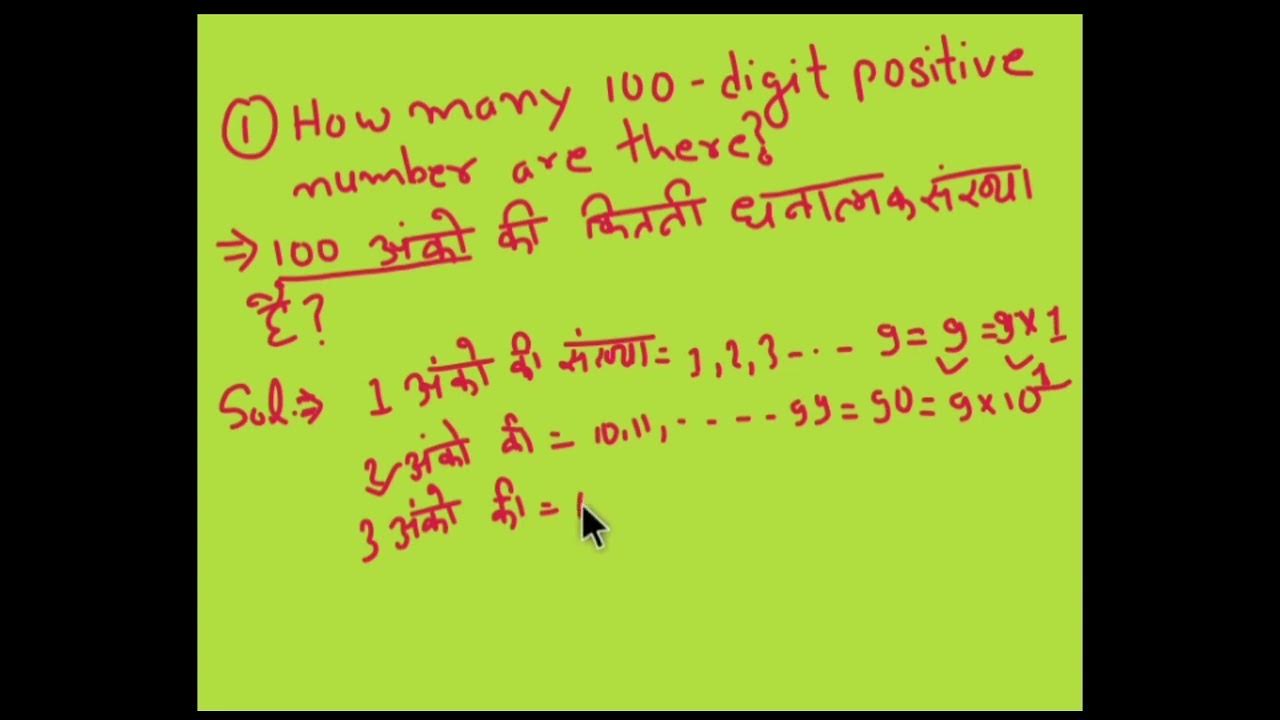 ① How many 100-digit positive
number are there?
⇒ 100 अंको की कितनी धनात्मक संख्या
है?
Sol.⇒ 1 अंको की संख्या = 1,2,3-..- 9 = 9 = 9×1
2 अंको की = 10,11,.----99 = 90 = 9×10¹
3 अंको की = 1